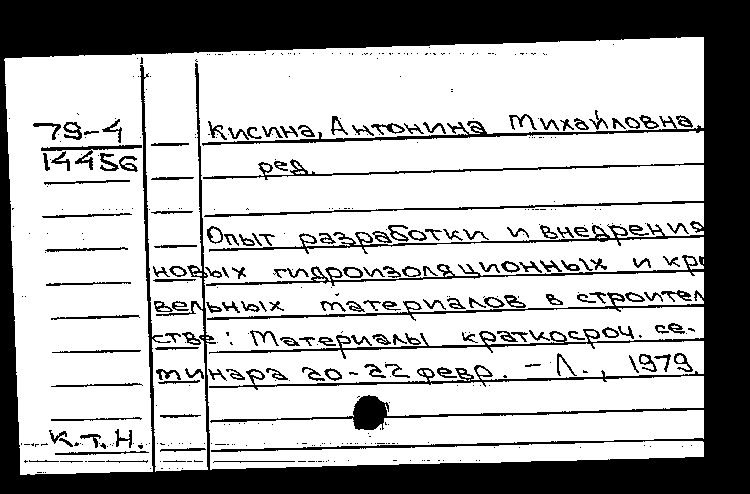 79-4
14456
Кисина, Антонина Михайловна,
ред.
Опыт разработки и внедрения
новых гидроизоляционных и кро
вельных материалов в строитель
стве: Материалы краткосроч. се-
минара 20-22 февр. - Л., 1979.
К.Т.Н.